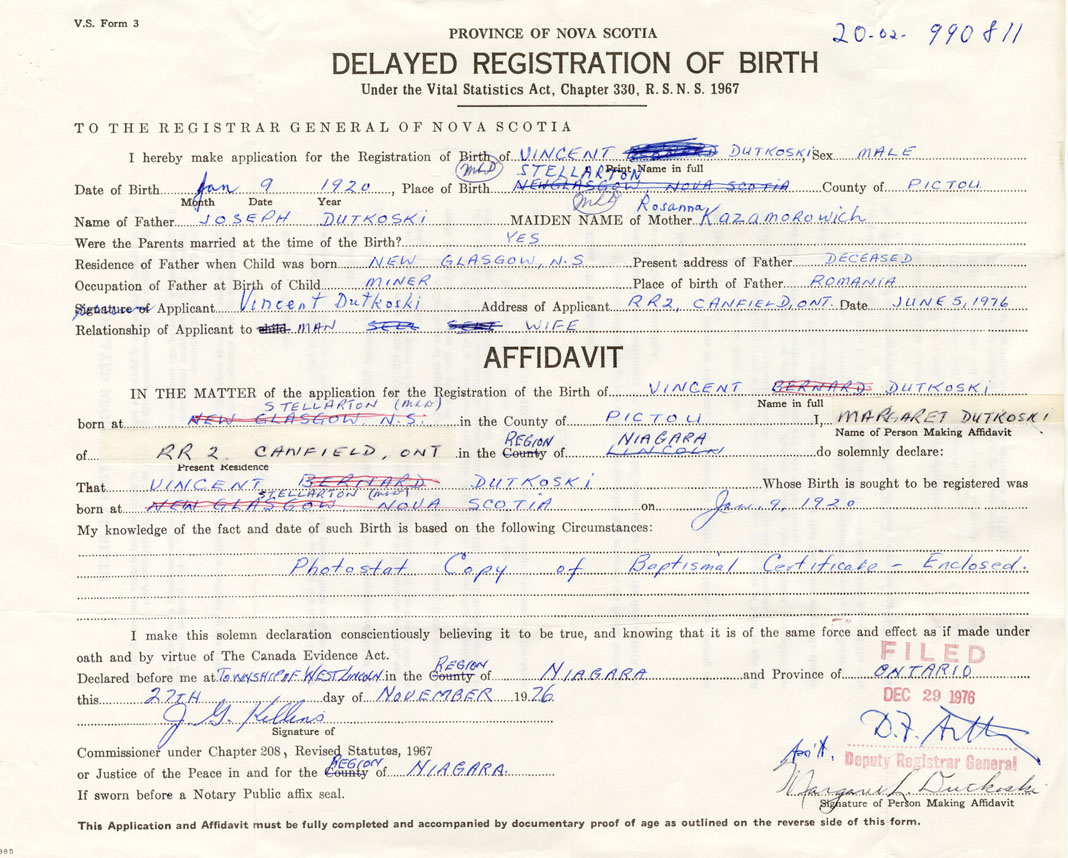 V.S. Form 3
20-02- 990811
PROVINCE OF NOVA SCOTIA
DELAYED REGISTRATION OF BIRTH
Under the Vital Statistics Act, Chapter 330, R. S. N. S. 1967
TO THE REGISTRAR GENERAL OF NOVA SCOTIA
I hereby make application for the Registration of Birth of VINCENT DUTKOSKI, Sex MALE
MLD STELLARTON Print Name in full
Date of Birth Jan 9 1920, Place of Birth NEW GLASGOW NOVA SCOTIA County of PICTOU
Month Date Year MLD Rosanna
Name of Father JOSEPH DUTKOSKI MAIDEN NAME of Mother Kazamorowich
Were the Parents married at the time of the Birth? YES
Residence of Father when Child was born NEW GLASGOW, N.S Present address of Father DECEASED
Occupation of Father at Birth of Child MINER Place of birth of Father ROMANIA
Signature of Applicant Vincent Dutkoski Address of Applicant RR2, CANFIELD, ONT. Date JUNE 5, 1976
Relationship of Applicant to child MAN SELF SELF WIFE
AFFIDAVIT
IN THE MATTER of the application for the Registration of the Birth of VINCENT BERNARD DUTKOSKI
STELLARTON (MLD) Name in full
born at NEW GLASGOW, N.S. in the County of PICTOU I, MARGARET DUTKOSKI
REGION NIAGARA Name of Person Making Affidavit
of RR 2. CANFIELD, ONT in the County of LINCOLN do solemnly declare:
Present Residence
That VINCENT BERNARD DUTKOSKI Whose Birth is sought to be registered was
STELLARTON (MLD)
born at NEW GLASGOW NOVA SCOTIA on Jan. 9, 1920
My knowledge of the fact and date of such Birth is based on the following Circumstances:
Photostat Copy of Baptismal Certificate - Enclosed.
I make this solemn declaration conscientiously believing it to be true, and knowing that it is of the same force and effect as if made under
oath and by virtue of The Canada Evidence Act.
FILED
REGION
Declared before me at TOWNSHIP OF WEST LINCOLN in the County of NIAGARA and Province of ONTARIO
this 27TH day of NOVEMBER 1976
DEC 29 1976
J. G. Killins
Signature of
Commissioner under Chapter 208, Revised Statutes, 1967
REGION
or Justice of the Peace in and for the County of NIAGARA.
Deputy Registrar General
If sworn before a Notary Public affix seal.
Margaret L. Dutkoski
Signature of Person Making Affidavit
This Application and Affidavit must be fully completed and accompanied by documentary proof of age as outlined on the reverse side of this form.